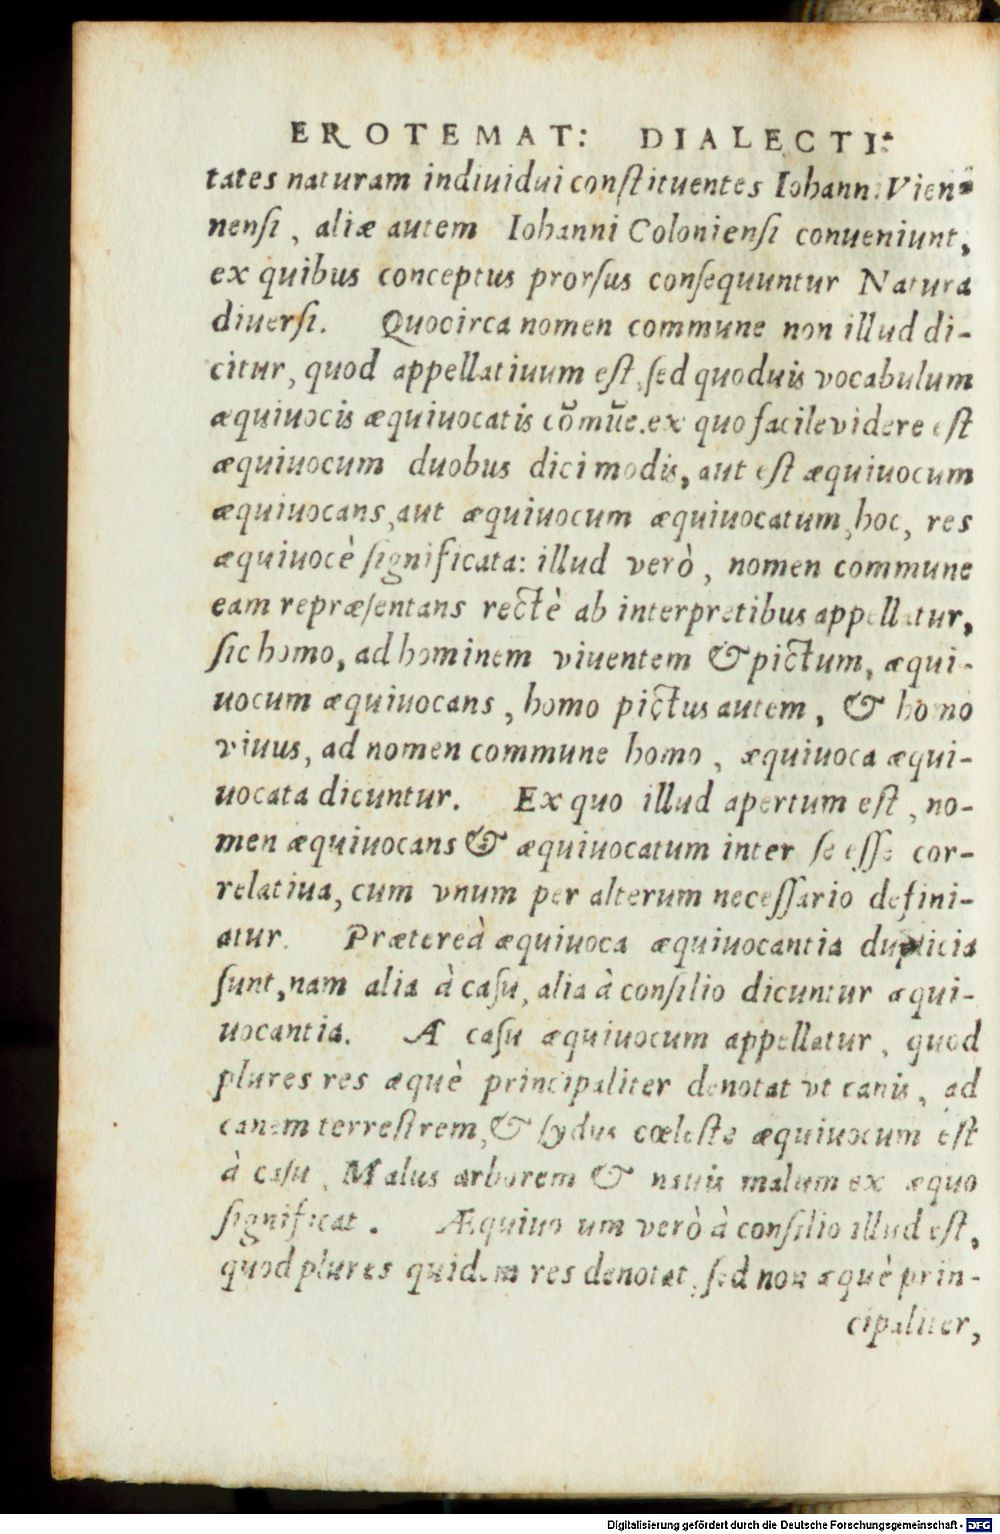 EROTEMAT: DIALECTI:
tates naturam indiuidui conſtituentes Iohann. Vien-
nenſi, aliæ autem Iohanni Colonienſi conueniunt,
ex quibus conceptus prorſus conſequuntur Natura
diuerſi. Quocirca nomen commune non illud di-
citur, quod appellatiuum eſt, ſed quoduis vocabulum
æquiuocis æquiuocatis cōmūe. ex quo facile videre eſt
æquiuocum duobus dici modis, aut eſt æquiuocum
æquiuocans, aut æquiuocum æquiuocatum, hoc, res
æquiuocè ſignificata: illud verò, nomen commune
eam repræſentans rectè ab interpretibus appellatur,
ſic homo, ad hominem viuentem & pictum, æqui-
uocum æquiuocans, homo pictus autem, & homo
viuus, ad nomen commune homo, æquiuoca æqui-
uocata dicuntur. Ex quo illud apertum eſt, no-
men æquiuocans & æquiuocatum inter ſe eſſe cor-
relatiua, cum vnum per alterum neceſſario defini-
atur. Prætereà æquiuoca æquiuocantia duplicia
ſunt, nam alia à caſu, alia à conſilio dicuntur æqui-
uocantia. A caſu æquiuocum appellatur, quod
plures res æquè principaliter denotat vt canis, ad
canem terreſtrem, & ſydus cœleſte æquiuocum eſt
à caſu. Malus arborem & nauis malum ex æquo
ſignificat. Æquiuo um verò à conſilio illud eſt,
quod plures quidem res denotat, ſed non æquè prin-
cipaliter,
Digitalisierung gefördert durch die Deutsche Forschungsgemeinschaft - DFG